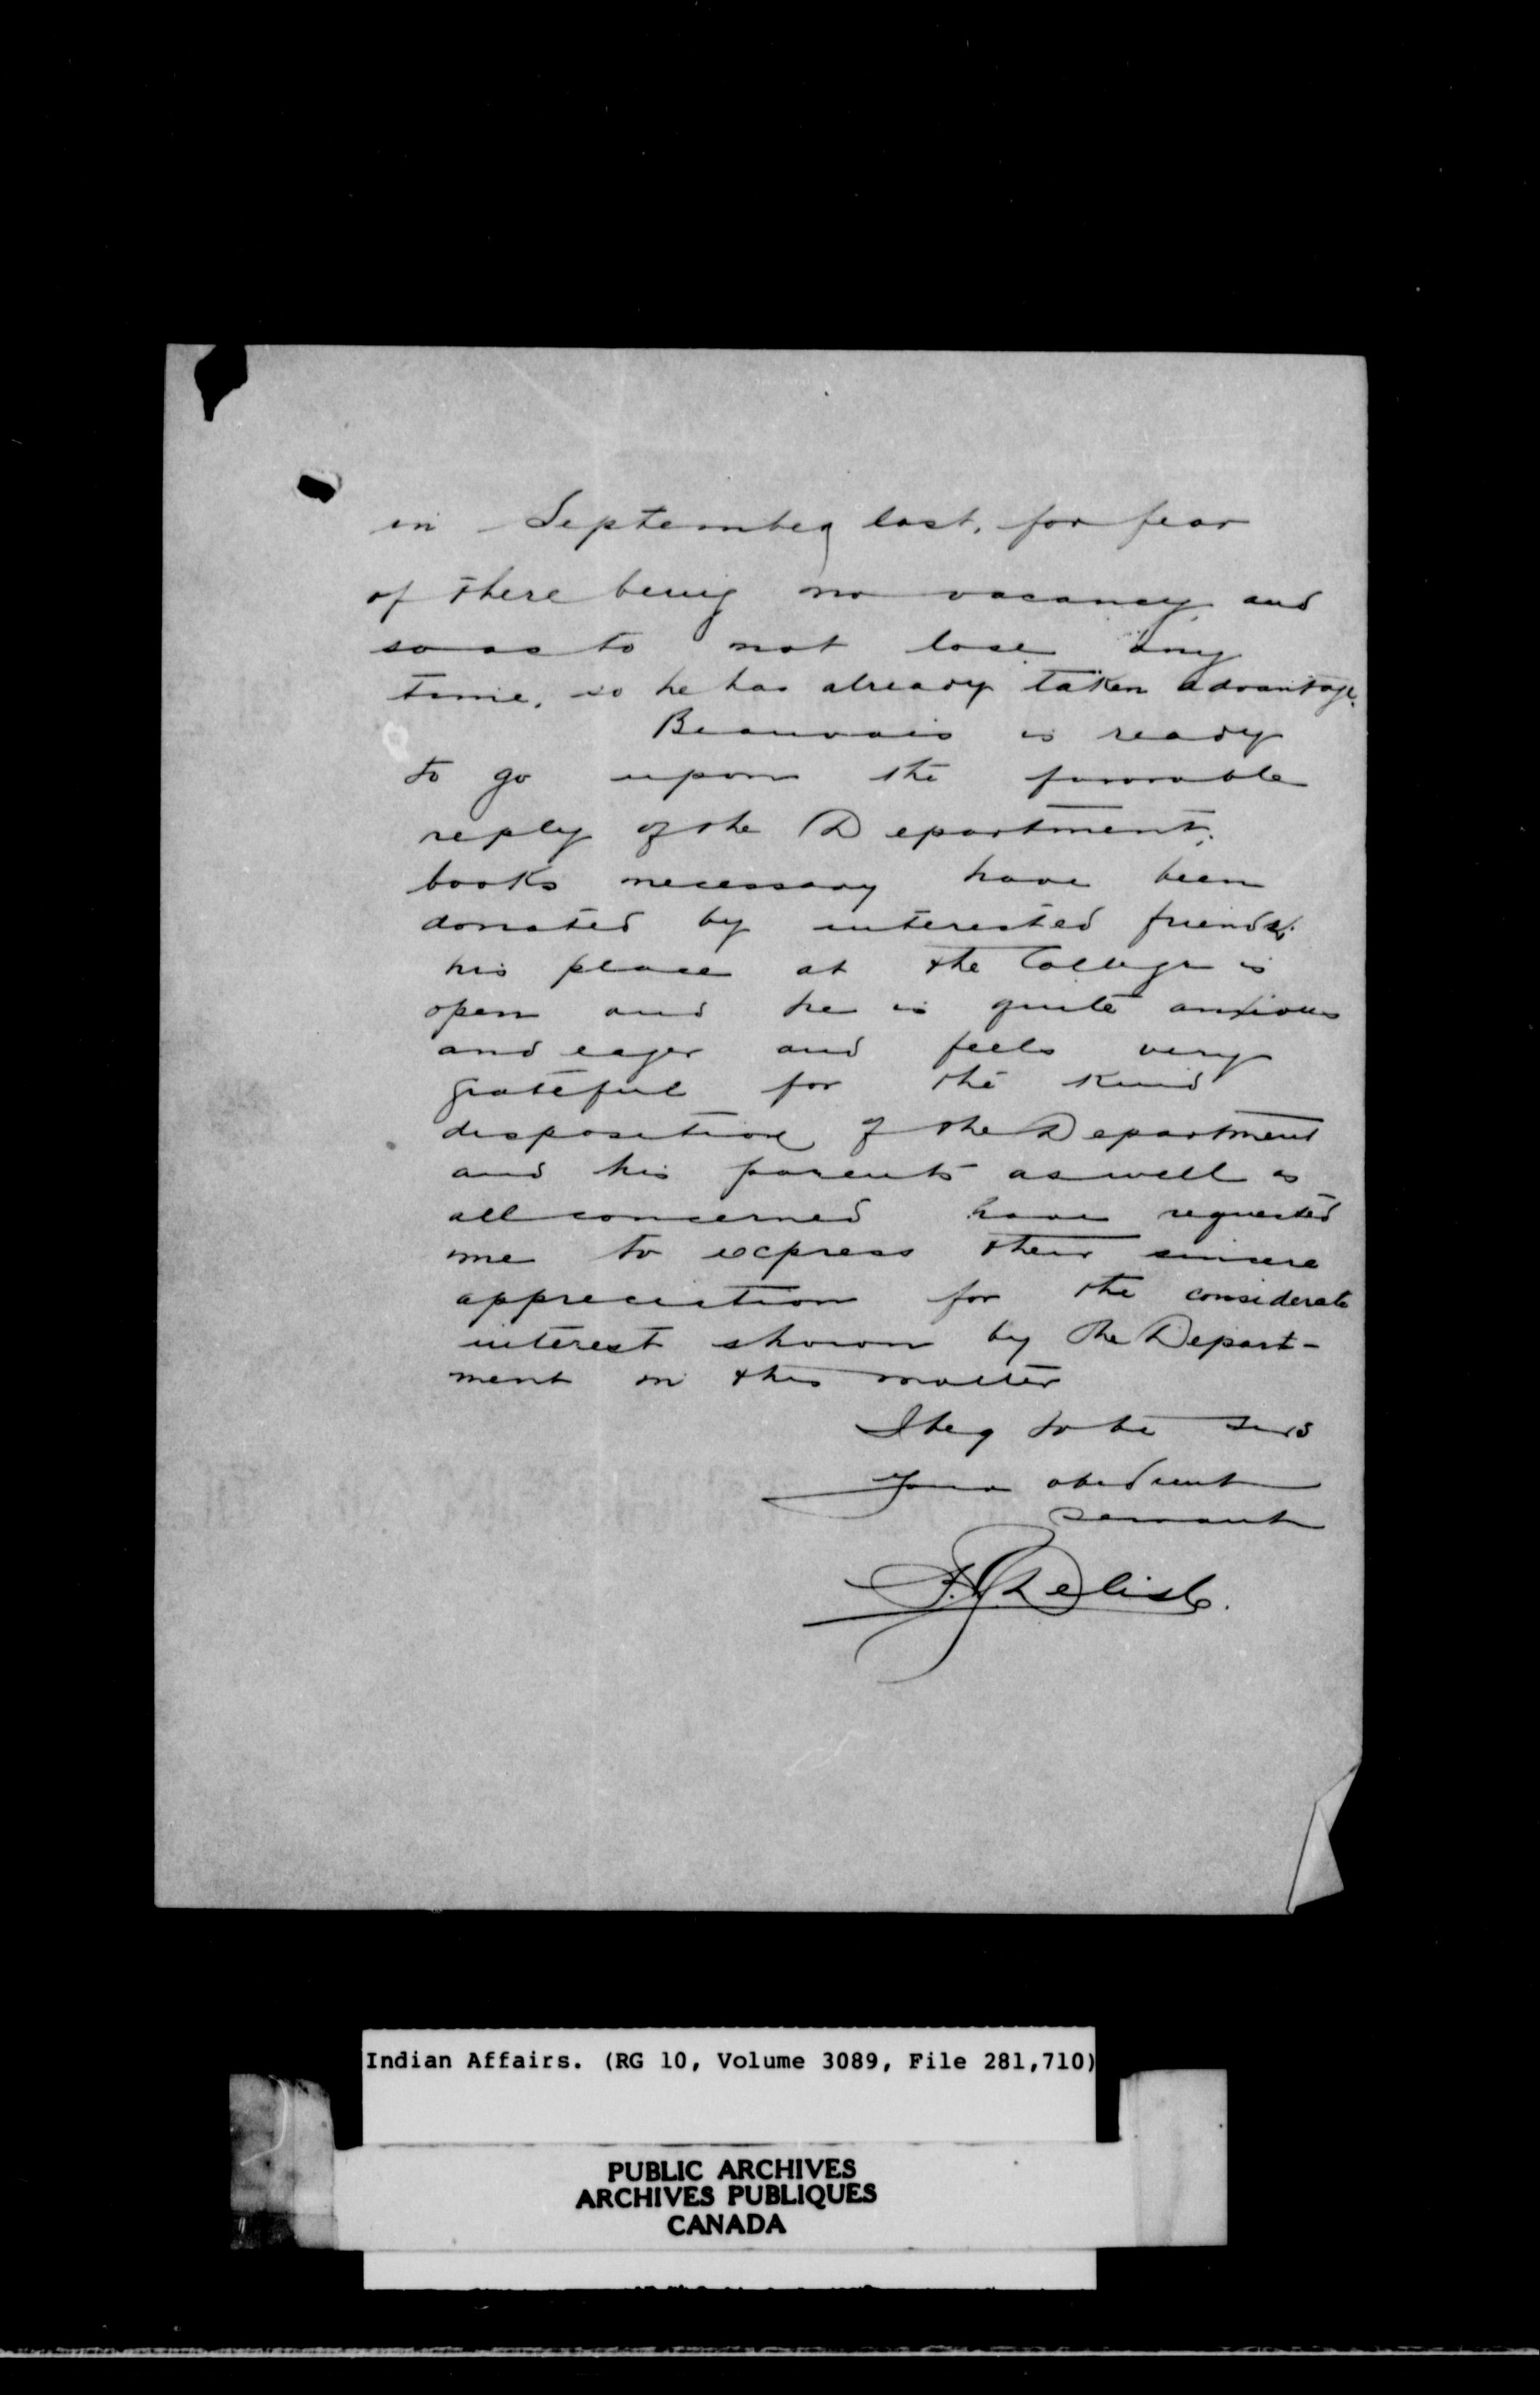 in September last, for fear
of there being no vacancy and
so as to not lose any
time, so he has already taken advantage.
Beauvais is ready
to go upon the favorable
reply of the Department,
books necessary have been
donated by interested friends.
his place at the College is
open and he is quite anxious
and eager and feels very
grateful for the kind
disposition of the Department
and his parents as well as
all concerned have requested
me to express their sincere
appreciation for the considerate
interest shown by the Depart-
ment in this matter
I beg to be Sirs
Your obedient
servant
Delisle.
Indian Affairs. (RG 10, Volume 3089, File 281,710)
PUBLIC ARCHIVES
ARCHIVES PUBLIQUES
CANADA